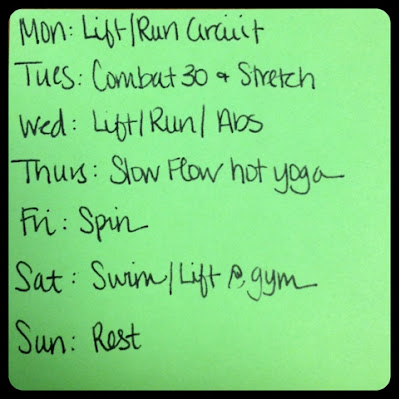 Mon: Lift/Run Circuit
Tues: Combat 30 & Stretch
Wed: Lift/Run/ Abs
Thurs: Slow Flow hot yoga
Fri: Spin
Sat: Swim/Lift @ gym
Sun: Rest